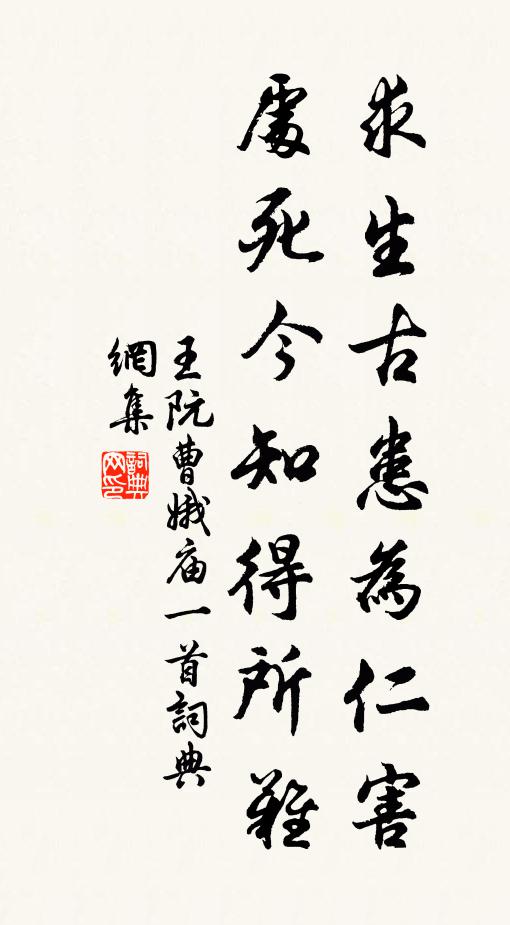 求生古患為仁害
處死今知得所難
王阮曹娥庙一首詞典
網集
詞典网印